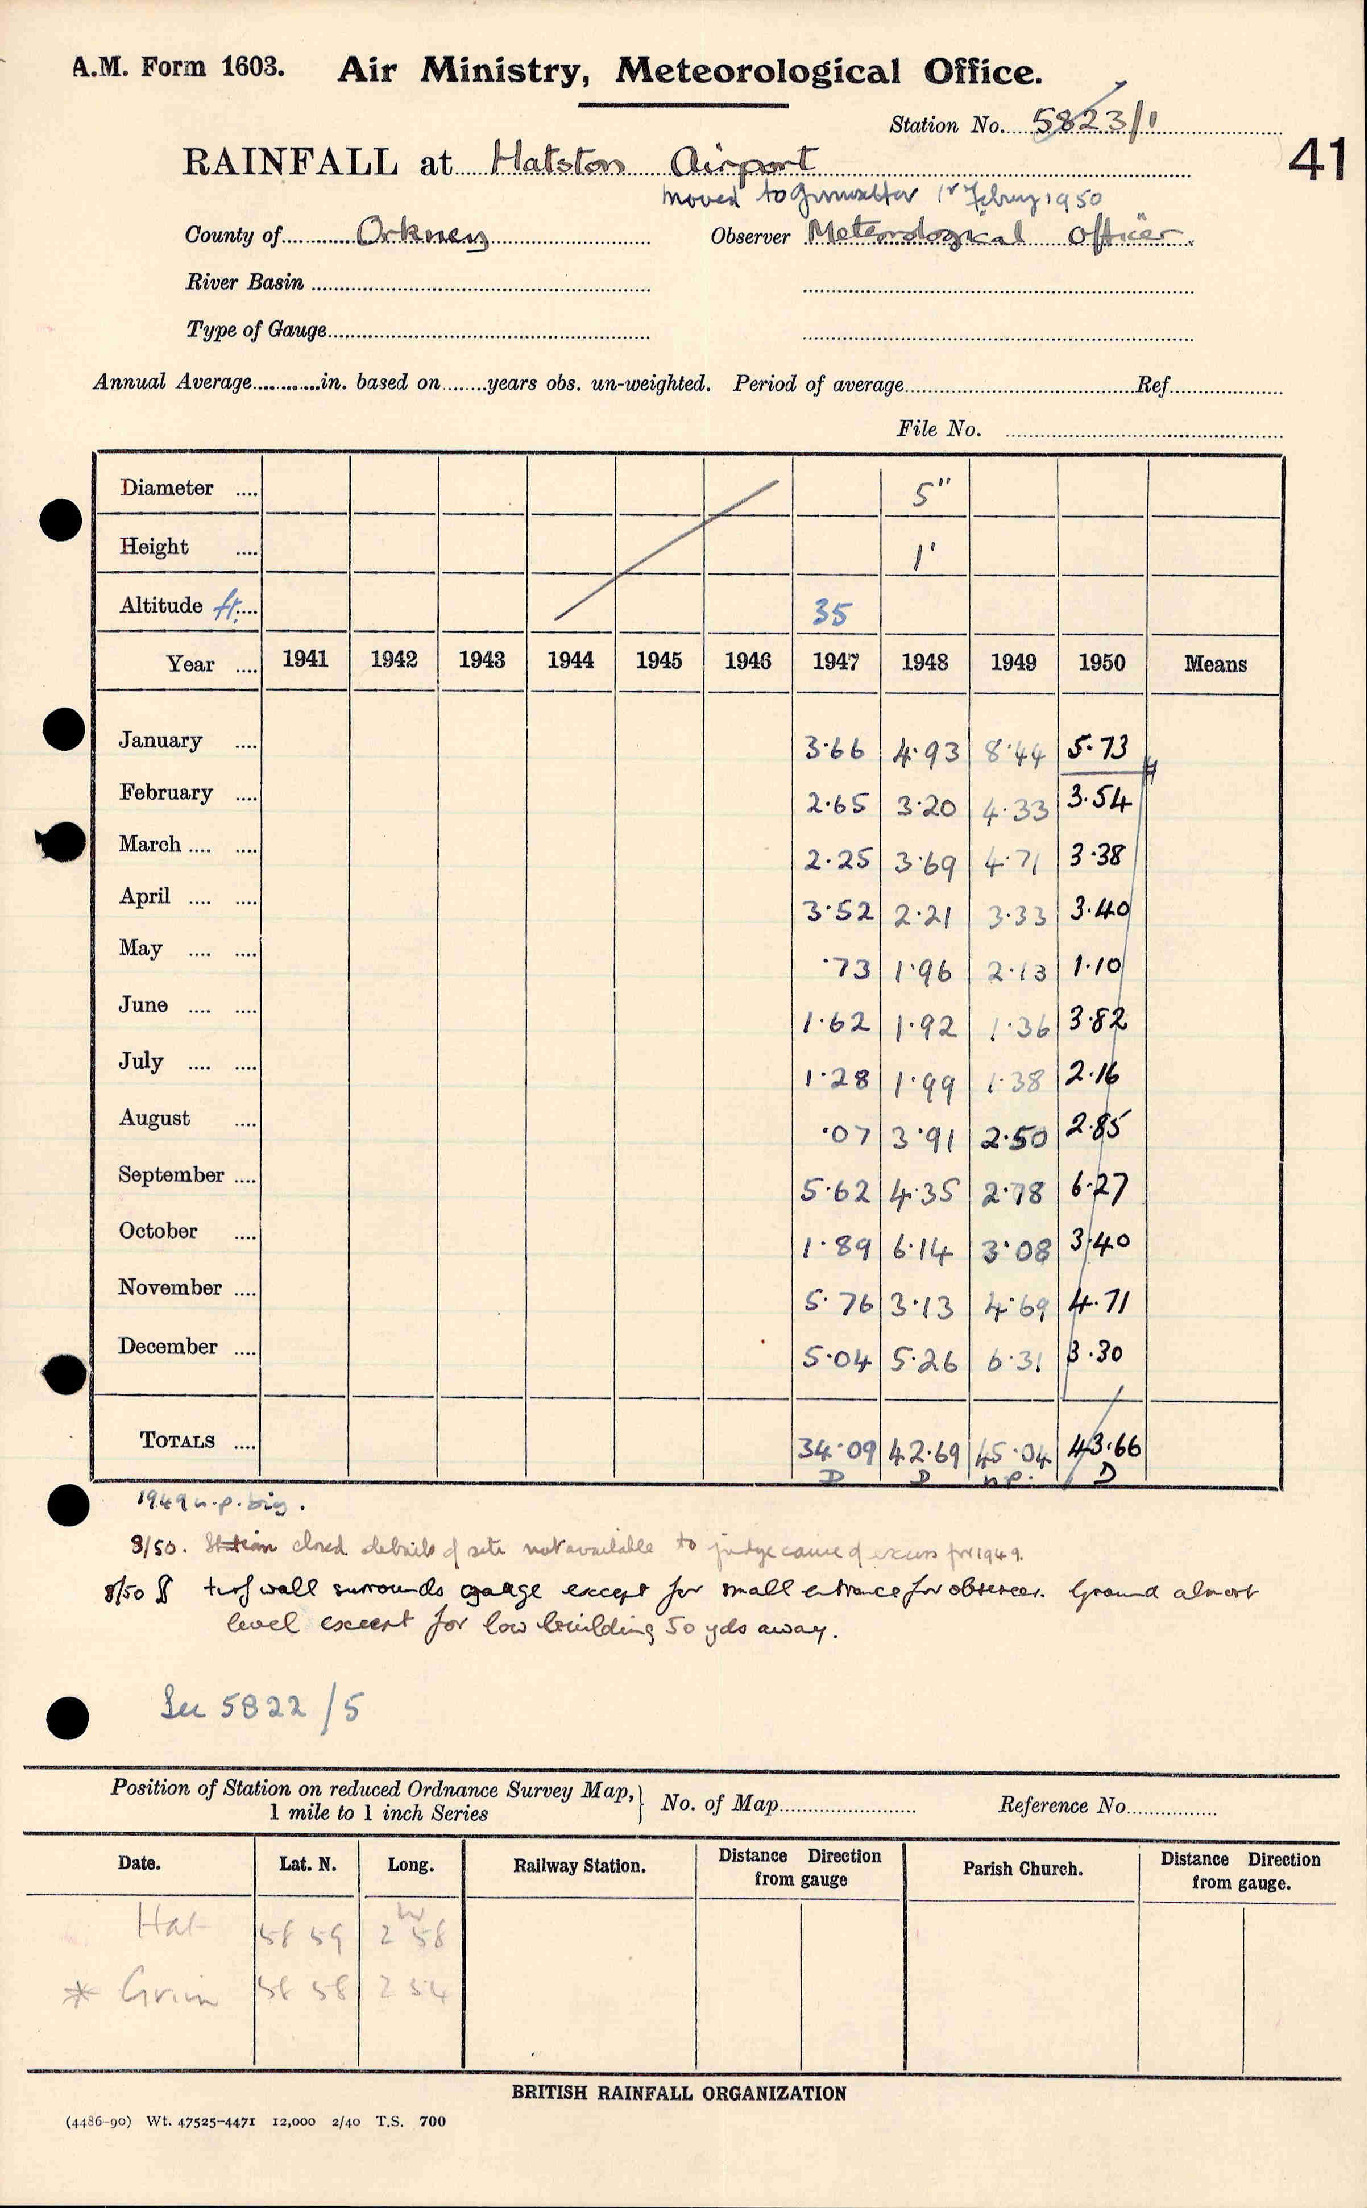 A.M. Form 1603. Air Ministry, Meteorological Office.
Station No. 5823/1
41
RAINFALL at Hatston Airport
moved to Grimsetter 1st Febry 1950
County of Orkney Observer Meteorological Officer.
River Basin
Type of Gauge
Annual Average............in. based on........years obs. un-weighted. Period of average Ref.
File No.
Diameter .... 5"
Height .... 1'
Altitude ft. .... 35
Year .... 1941 1942 1943 1944 1945 1946 1947 1948 1949 1950 Means
January .... 3·66 4·93 8·44 5·73
February .... 2·65 3·20 4·33 3·54
March .... .... 2·25 3·69 4·71 3·38
April .... .... 3·52 2·21 3·33 3·40
May .... .... ·73 1·96 2·13 1·10
June .... .... 1·62 1·92 1·36 3·82
July .... .... 1·28 1·99 1·38 2·16
August .... ·07 3·91 2·50 2·85
September .... 5·62 4·35 2·78 6·27
October .... 1·89 6·14 3·08 3·40
November .... 5·76 3·13 4·69 4·71
December .... 5·04 5·26 6·31 3·30
TOTALS .... 34·09 42·69 45·04 43·66
D D n.p. D
1949 n.p. big.
3/50. Station closed details of site not available to judge cause of excess for 1949.
8/50 turf wall surrounds gauge except for small entrance for observer. Ground almost
level except for low building 50 yds away.
See 5822/5
Position of Station on reduced Ordnance Survey Map, 1 mile to 1 inch Series } No. of Map Reference No.
Date. Lat. N. Long. Railway Station. Distance Direction from gauge Parish Church. Distance Direction from gauge.
Hat 58 59 2 W 58
* Grim 58 58 2 54
BRITISH RAINFALL ORGANIZATION
(4486-90) Wt. 47525-4471 12,000 2/40 T.S. 700